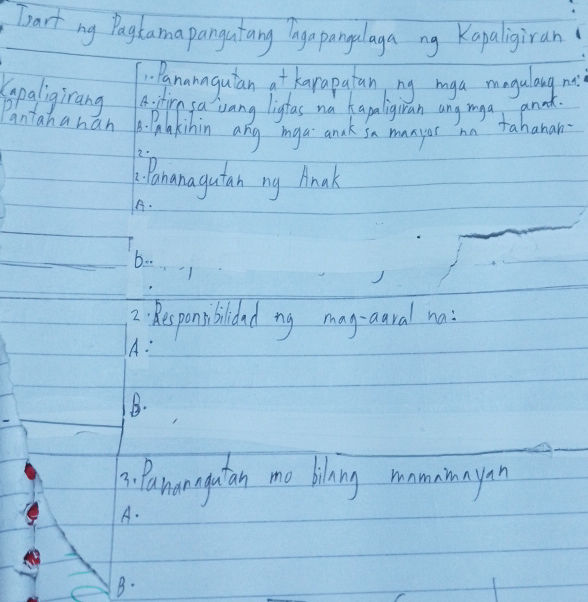 Tsart ng Pagkamapangutang Tagapangalaga ng Kapaligiran
1. Pananagutan at karapatan ng mga magulang na:
Kapaligirang
Pantahanan
A. itira sa isang ligtas na kapaligiran ang mga anak.
B. Palakihin ang mga anak sa maayos na tahanan.
2.
2. Pananagutan ng Anak
A.
b.
2. Responsibilidad ng mag-aaral na:
A:
B.
3. Pananagutan mo bilang mamamayan
A.
B.